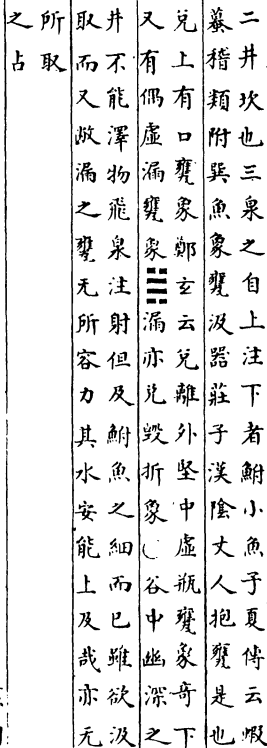 二井坎也三泉之自上注下者鮒小魚子夏傳云蝦
蟇稽類附巽魚象甕汲器莊子漢陰丈人抱甕是也
兌上有口甕象鄭玄云兌離外堅中虛瓶甕象竒下
又有偶虛漏甕象漏亦兌毀折象○谷中幽深之
井不能澤物飛泉注射但及鮒魚之細而已雖欲汲
取而又敝漏之甕无所容力其水安能上及哉亦无
所取
之占